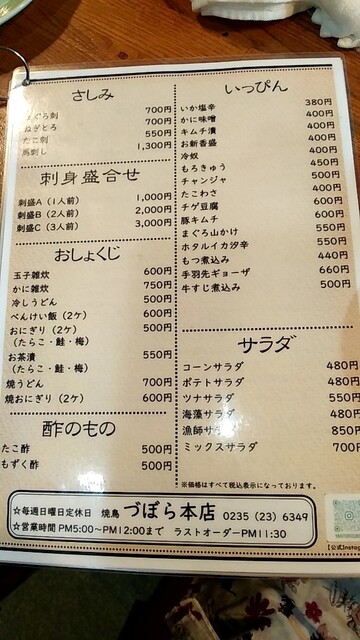 さしみ
まぐろ刺 700円
ねぎとろ 700円
たこ刺 550円
馬刺し 1,300円
刺身盛合せ
刺盛A（1人前） 1,000円
刺盛B（2人前） 2,000円
刺盛C（3人前） 3,000円
おしょくじ
玉子雑炊 600円
かに雑炊 750円
冷しうどん 500円
べんけい飯（2ケ） 600円
おにぎり（2ケ） 500円
（たらこ・鮭・梅）
お茶漬 550円
（たらこ・鮭・梅）
焼うどん 700円
焼おにぎり（2ケ） 600円
酢のもの
たこ酢 500円
もずく酢 500円
いっぴん
いか塩辛 380円
かに味噌 400円
キムチ漬 400円
お新香盛 400円
冷奴 400円
もろきゅう 450円
チャンジャ 500円
たこわさ 400円
チゲ豆腐 600円
豚キムチ 600円
まぐろ山かけ 550円
ホタルイカ沙辛 550円
もつ煮込み 440円
手羽先ギョーザ 660円
牛すじ煮込み 500円
サラダ
コーンサラダ 480円
ポテトサラダ 480円
ツナサラダ 550円
海藻サラダ 480円
漁師サラダ 850円
ミックスサラダ 700円
※価格はすべて税込表示になっております。
☆毎週日曜日定休日 焼鳥 づぼら本店 0235（23）6349
☆営業時間PM5:00～PM12:00まで ラストオーダーPM11:30